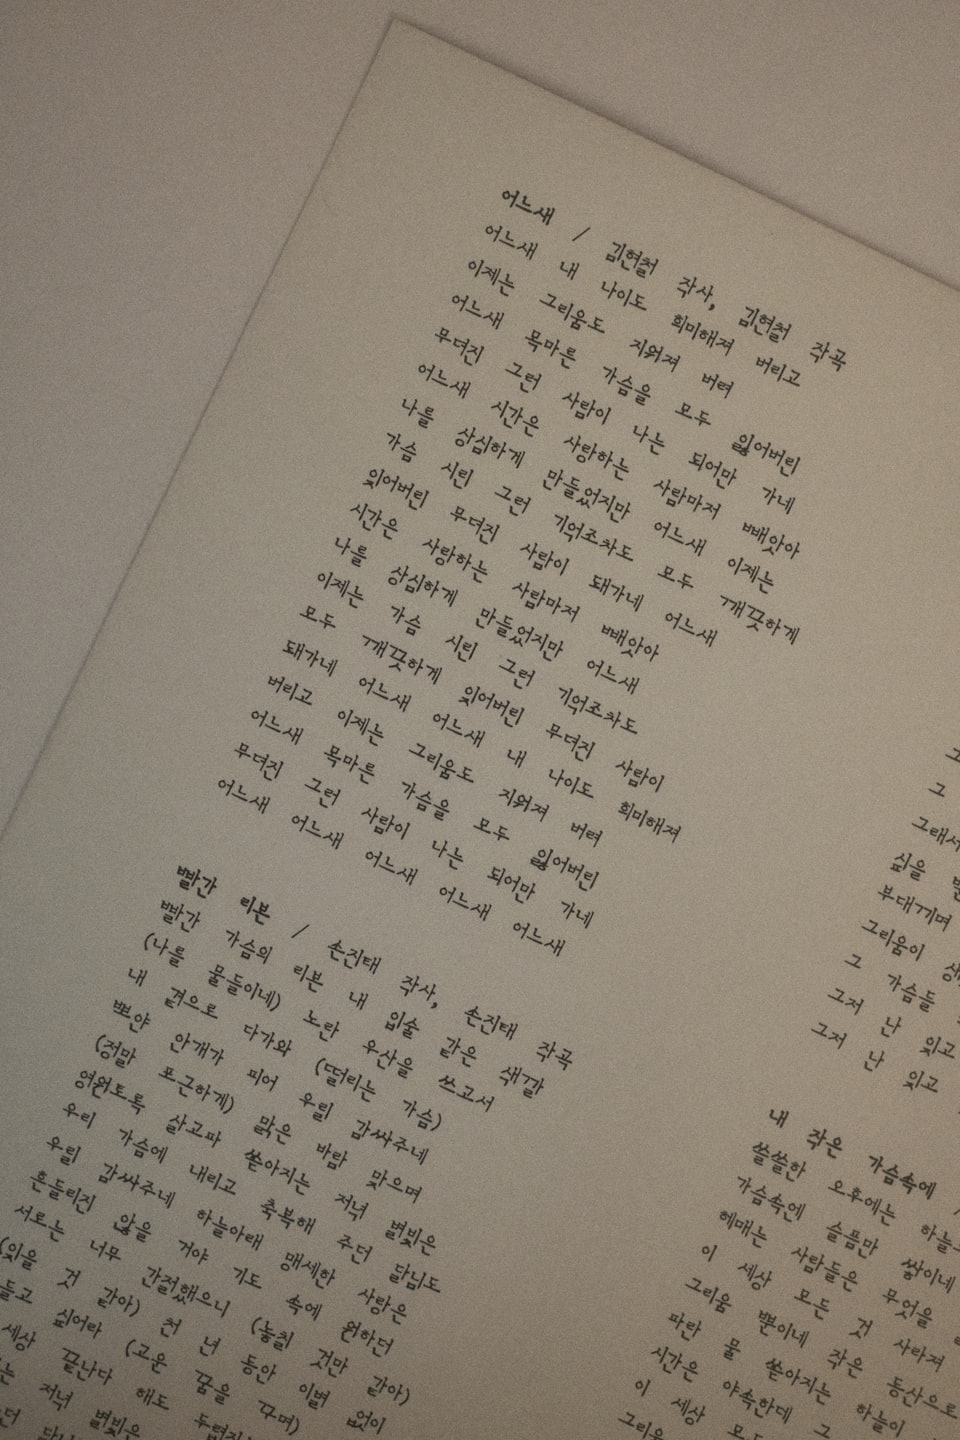 어느새 / 김현철 작사, 김현철 작곡
어느새 내 나이도 희미해져 버리고
이제는 그리움도 지워져 버려
어느새 목마른 가슴을 모두 잃어버린
무뎌진 그런 사람이 나는 되어만 가네
어느새 시간은 사랑하는 사람마저 빼앗아
나를 상심하게 만들었지만 어느새 이제는
가슴 시린 그런 기억조차도 모두 깨끗하게
잊어버린 무뎌진 사람이 돼가네 어느새
시간은 사랑하는 사람마저 빼앗아
나를 상심하게 만들었지만 어느새
이제는 가슴 시린 그런 기억조차도
모두 깨끗하게 잊어버린 무뎌진 사람이
돼가네 어느새 어느새 내 나이도 희미해져
버리고 이제는 그리움도 지워져 버려
어느새 목마른 가슴을 모두 잃어버린
무뎌진 그런 사람이 나는 되어만 가네
어느새 어느새 어느새 어느새 어느새
빨간 리본 / 손진태 작사, 손진태 작곡
빨간 가슴의 리본 내 입술 같은 색깔
(나를 물들이네) 노란 우산을 쓰고서
내 곁으로 다가와 (떨리는 가슴)
뽀얀 안개가 피어 우릴 감싸주네
(정말 포근하게) 맑은 바람 맞으며
영원토록 살고파 쏟아지는 저녁 별빛은
우리 가슴에 내리고 축복해 주던 달님도
우릴 감싸주네 하늘아래 맹세한 사랑은
흔들리진 않을 거야 기도 속에 원하던
서로는 너무 간절했으니 (놓칠 것만 같아)
(잊을 것 같아) 천 년 동안 이별 없이
들고 싶어라 (고운 꿈을 꾸며)
세상 끝난다 해도
저녁 별빛은
그
그래서
싶을
부대끼며
그리움이
그 가슴들
그저 난 잊고
그저 난 잊고
내 작은 가슴속에 /
쓸쓸한 오후에는
가슴속엔 슬픔만 쌓이네
헤매는 사람들은 무엇을
이 세상 모든 것 사라져
그리움 뿐이네 작은 동산으로
파란 물 쏟아지는 하늘이
시간은 야속한데 그
이 세상